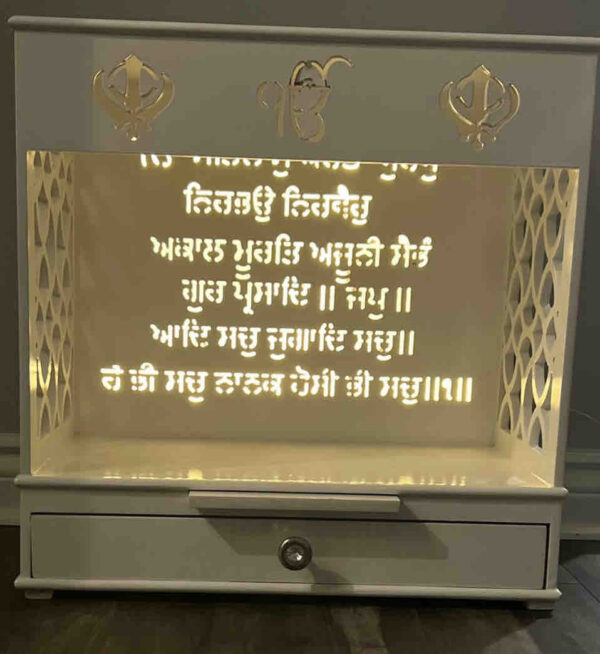 ੴ
ਨਿਰਭਉ ਨਿਰਵੈਰੁ
ਅਕਾਲ ਮੂਰਤਿ ਅਜੂਨੀ ਸੈਭੰ
ਗੁਰ ਪ੍ਰਸਾਦਿ ॥ ਜਪੁ ॥
ਆਦਿ ਸਚੁ ਜੁਗਾਦਿ ਸਚੁ॥
ਹੈ ਭੀ ਸਚੁ ਨਾਨਕ ਹੋਸੀ ਭੀ ਸਚੁ॥੧॥